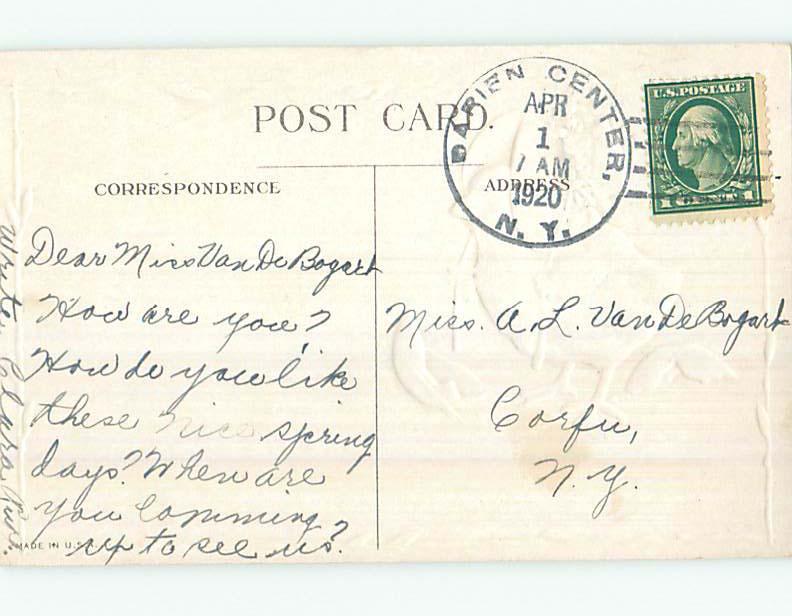 POST CARD.
CORRESPONDENCE
ADDRESS
DARIEN CENTER,
APR
1
7 AM
1920
N. Y.
U.S. POSTAGE
1 CENT 1
Dear Miss Van De Bogart
How are you?
How do you like
these nice spring
days? When are
you comming
up to see us?
Write, Clara
Miss. A. L. Van De Bogart
Corfu,
N. Y.
MADE IN U.S.A.